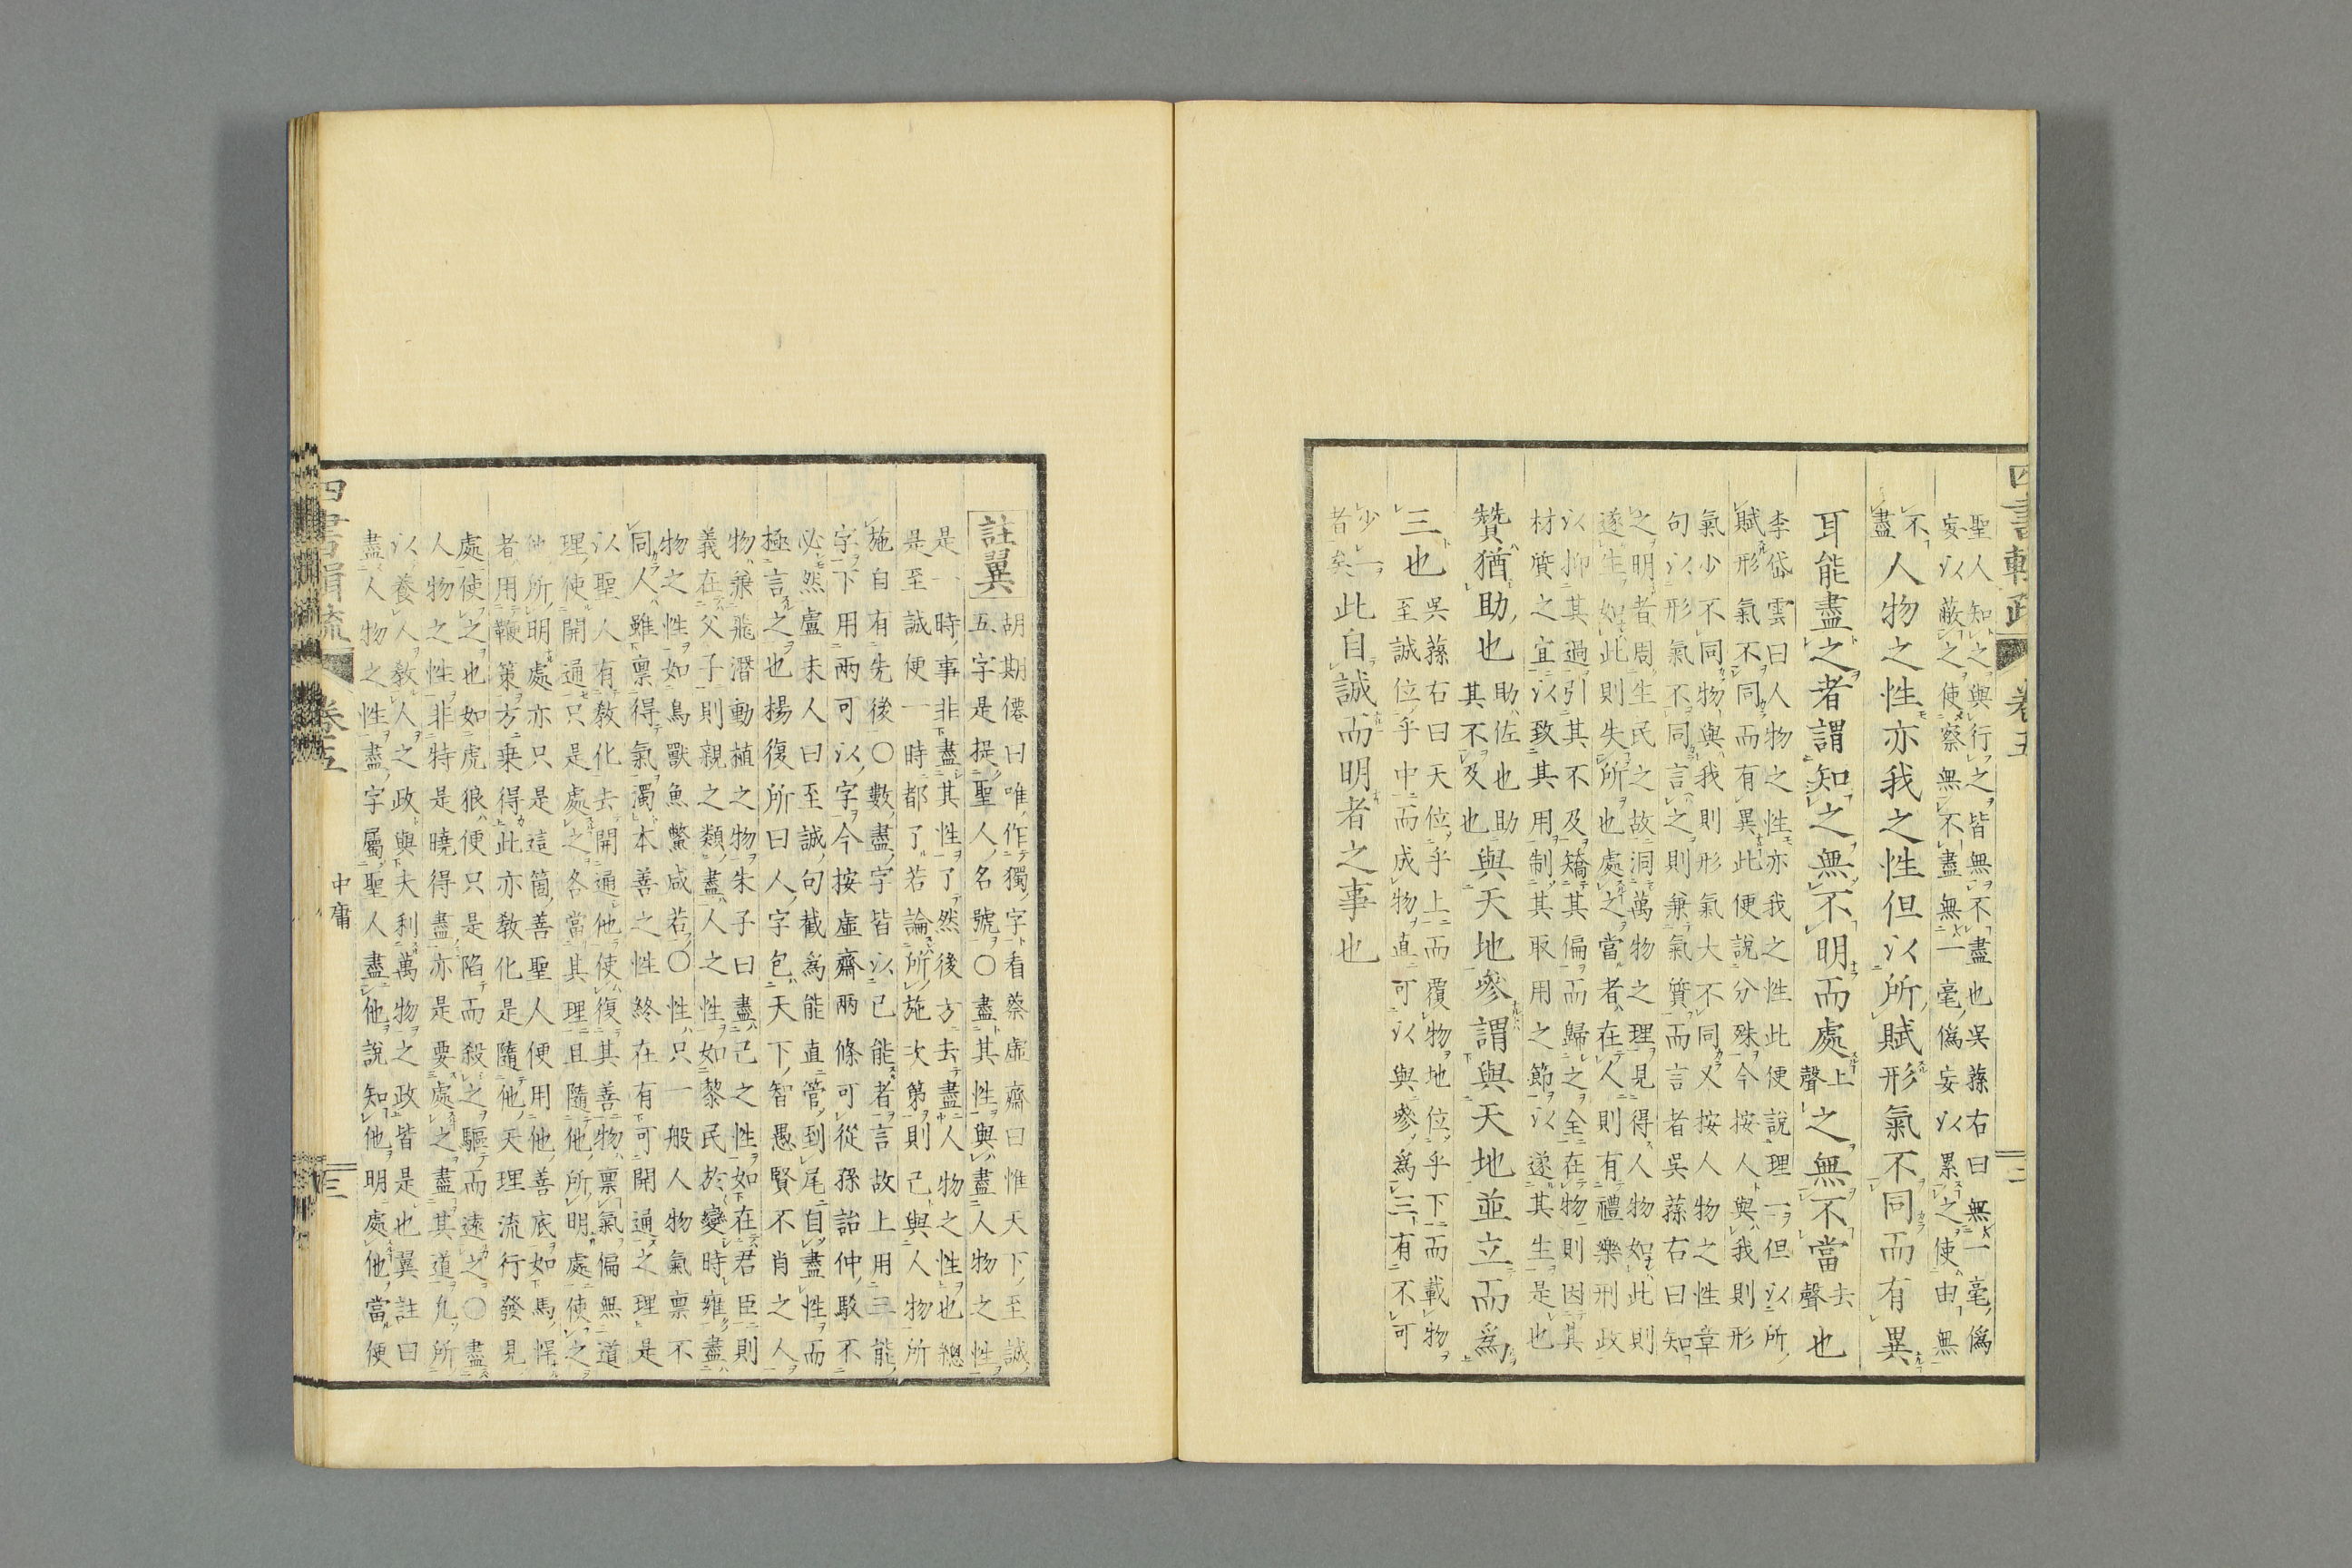 聖人知之與行之皆無不盡也吳蓀右曰無一毫僞
妄以蔽之使察無不盡無一毫僞妄以累之使由無
不
盡人物之性亦我之性但以所賦形氣不同而有異
耳能盡之者謂知之無不明而處上聲之無不當去聲也
李岱雲曰人物之性亦我之性此便說理一但以所
賦形氣不同而有異此便說分殊今按人與我則形
氣少不同物與我則形氣大不同又按人物之性章
句以形氣不同言之則兼氣質而言者吳蓀右曰知
之明者周生民之故洞萬物之理見得人物如此則
遂生如此則失所也處之當者在人則有禮樂刑政
以抑其過引其不及矯其偏而歸之全在物則因其
材質之宜以致其用制其取用之節以遂其生是也
贊猶助也助佐也助其不及也與天地參謂與天地並立而爲
三也吳蓀右曰天位乎上而覆物地位乎下而載物
至誠位乎中而成物直可以與參爲三有不可
少一
者矣此自誠而明者之事也
註翼
胡期僊曰唯作獨字看蔡虛齋曰惟天下至誠
五字是提聖人名號○盡其性與盡人物之性
是一時事非盡其性了然後方去盡人物之性也總
是至誠便一時都了若論所施次第則己與人物所
施自有先後○數盡字皆以已能者言故上用三能
字下用兩可以字今按虛齋兩條可從孫詒仲駁不
必然盧未人曰至誠句截爲能直管到尾自盡性而
極言之也揚復所曰人字包天下智愚賢不肖之人
物兼飛潛動植之物朱子曰盡己之性如在君臣則
義在父子則親之類盡人之性如黎民於變時雍盡
物之性如鳥獸魚鱉咸若○性只一般人物氣禀不
同人雖禀得氣濁本善之性終在有可開通之理是
以聖人有教化去開通他使復其善物禀氣偏無道
理使開通只是處之各當其理且隨他所明處使之
他所明處亦只是這箇善聖人便用他善底如馬悍
者用鞭策方乗得此亦教化是隨他天理流行發見
處使之也如虎狼便只是陷而殺之驅而遠之○盡
人物之性非特是曉得盡亦是要處之盡其道凡所
以養人教人之政與夫利萬物之政皆是也翼註曰
盡人物之性盡字屬聖人盡他說知他明處他當便
四書輯疏
卷五
中庸
三